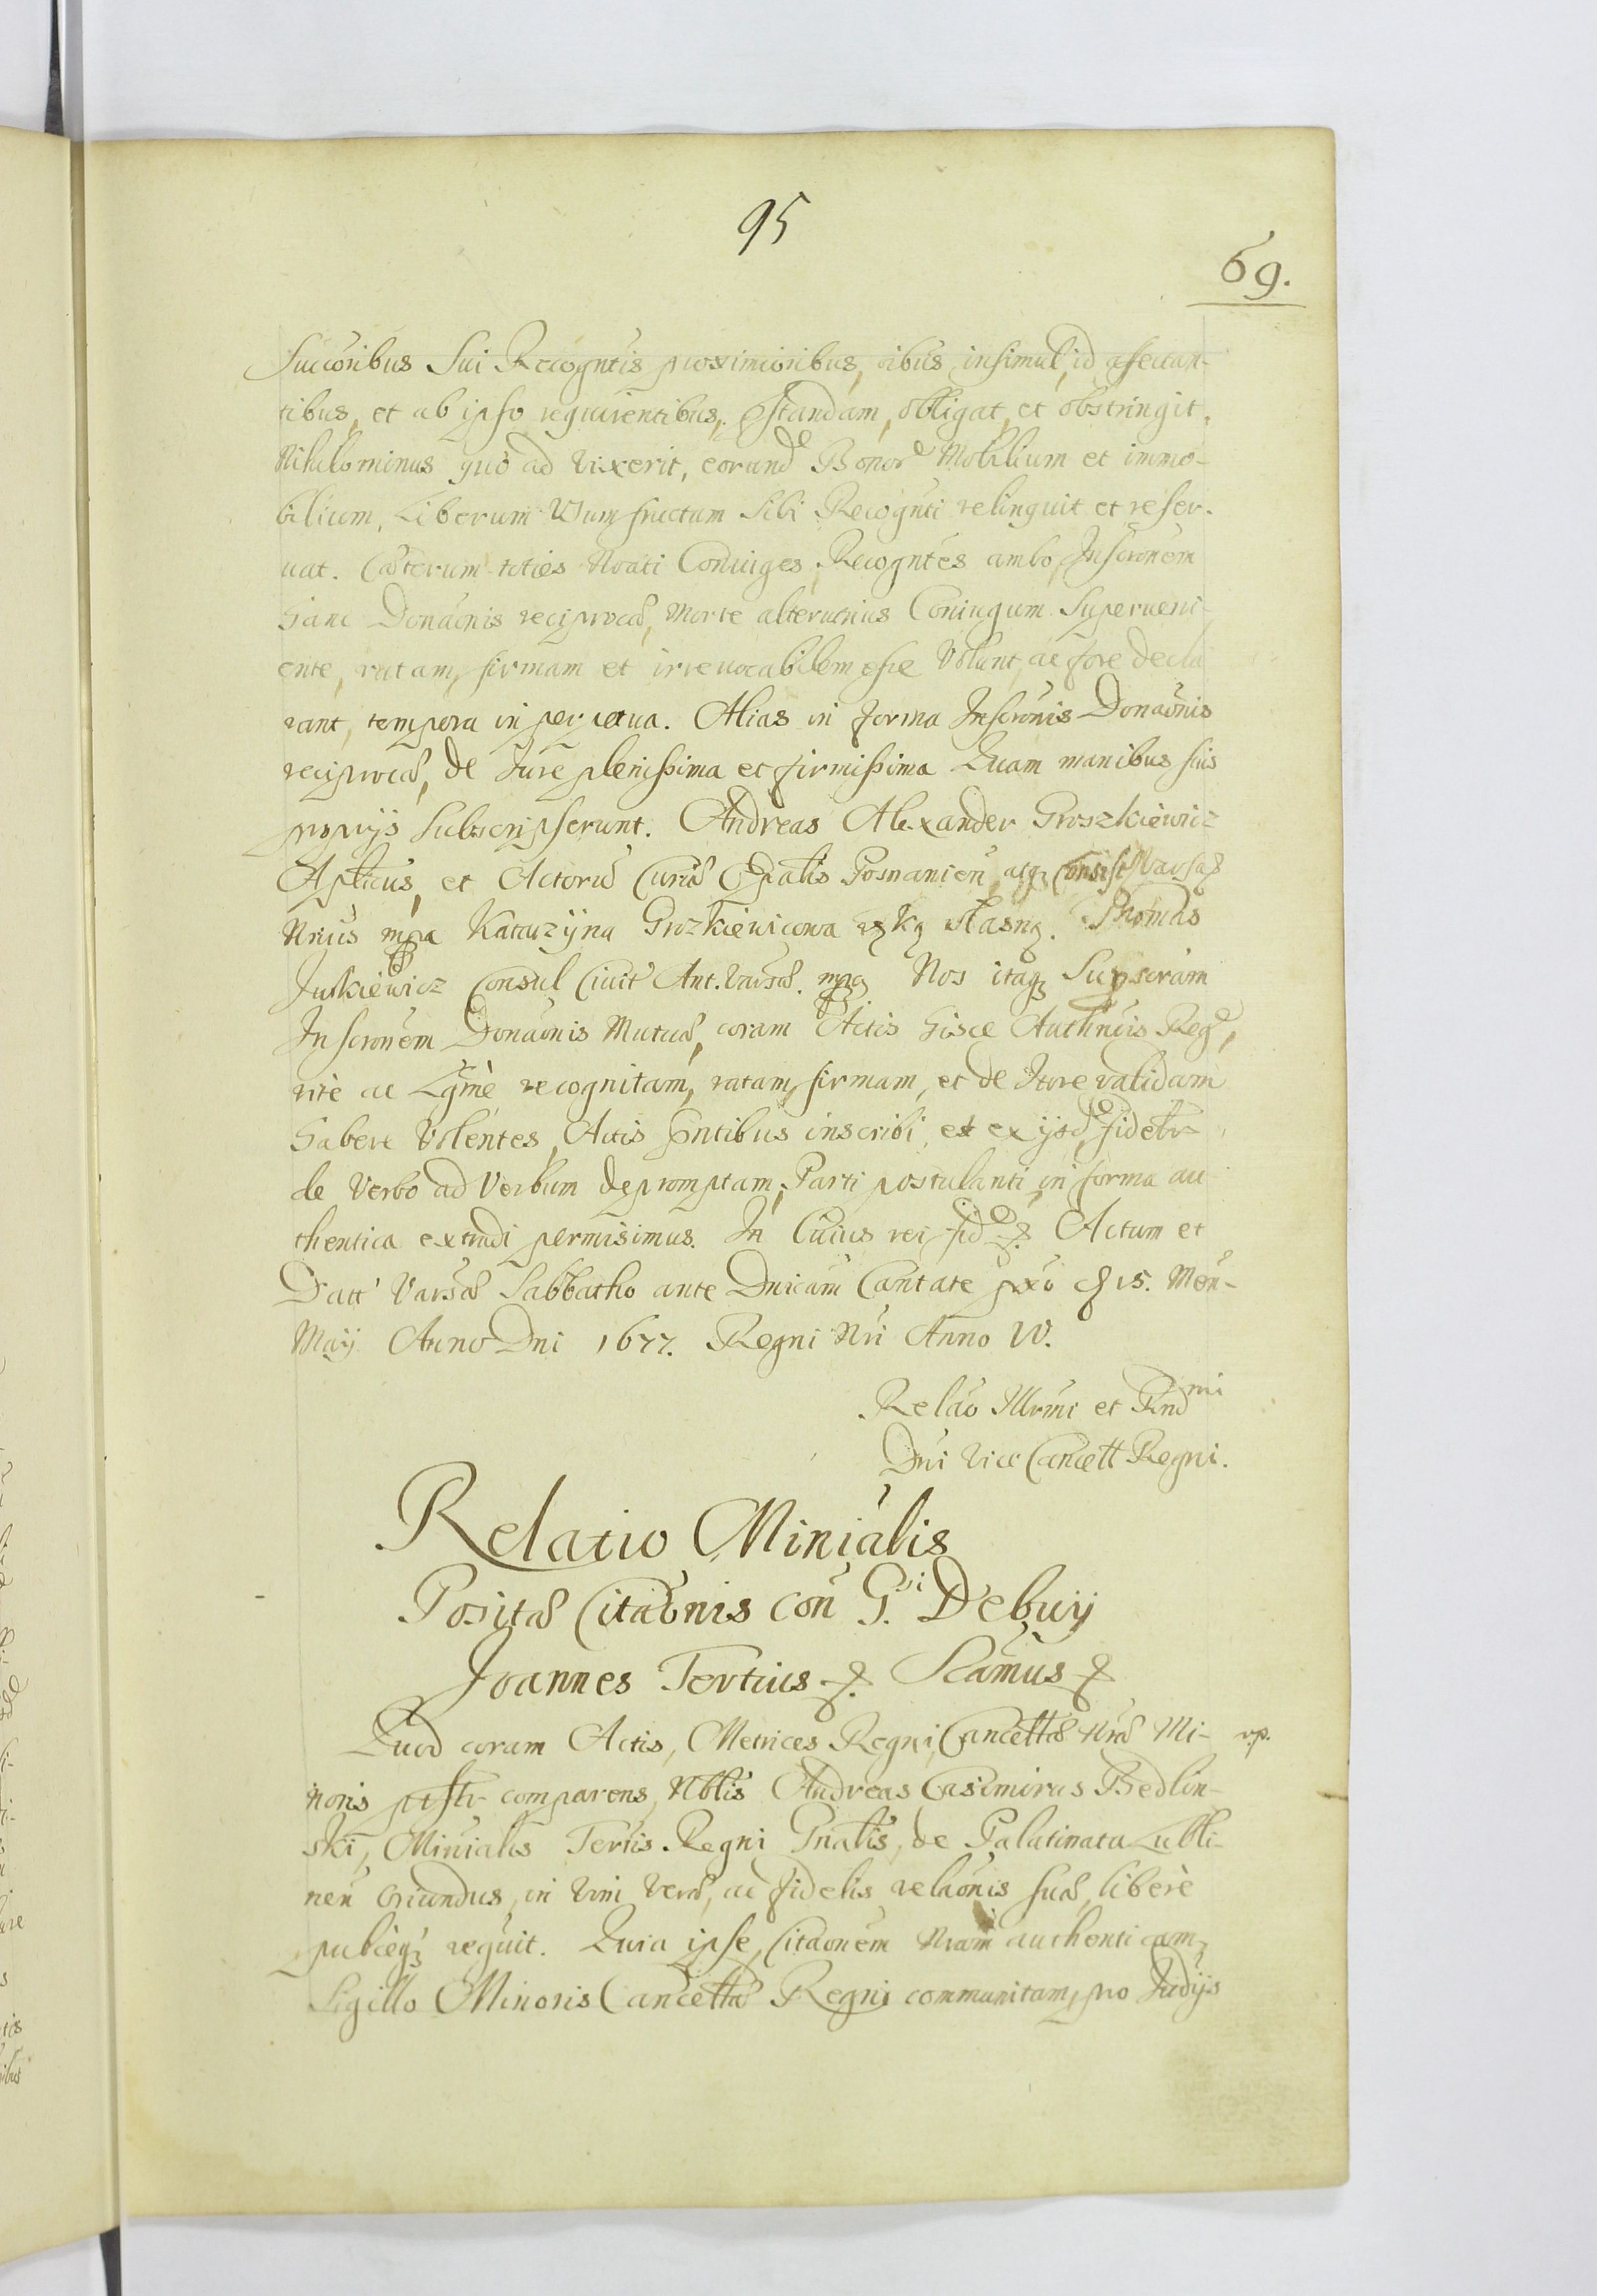 95
69.
Succoribus Sui Recogntis proximioribus, oibus insimul, id affectan-
tibus, et ab ipso requirentibus, pstandam, obligat, et obstringit.
Nihilominus quo ad vixerit, eorund Bonor Mobilium et immo-
bilium, Liberum Usumfructum sibi Recognti relinquit et reser-
uat. Cæterum toties Noati Coniuges Recogntes ambo, Inscronem
hanc Donaonis reciprocæ, Morte alterutrius Coniugum Superueni-
ente, ratam, firmam et irreuocabilem esse Volunt, ac fore decla
rant, tempora in perpetua. Alias in forma Inscronis Donaonis
reciprocæ, de Jure plenissima et firmissima Quam manibus suis
proprijs Subscripserunt. Andreas Alexander Groszkiewicz
Aplicus, et Actorū Curiæ Epalis Posnanien, atq Consist Varsaę
Nrius mpa Katarzyna Grozkiewicowa ręką własną. Thomas
Juskiewicz Consul Ciuit Ant. Varsaę. mpa Nos itaq Supscram
Inscronem Donaonis Mutuæ, coram Actis hisce Authncis Reg,
ritè ac Lgmè recognitam, ratam, firmam, et de Jure validam
habere Volentes, Actis pntibus inscribi, et ex ijsd fidelr
de Verbo ad Verbum depromptam, Parti postulanti in forma au
thentica extradi permisimus. In Cuius rei fid &. Actum et
Datt Varsæ Sabbatho ante Dnicam Cantate pxo d 15. Men-
Maij Anno Dni 1677. Regni Nri Anno IV.
Relao Illrmi et Rnd mi
Dni Vice Cancell Regni.
Relatio Minialis
Positæ Citaonis con G.si Debuij
Joannes Tertius &. Scamus &
Quod coram Actis, Metrices Regni Cancellæ Nræ Mi- v.p.
noris pstr comparens, Nblis Andreas Casimirus Bedlin-
ski, Minialis Terris Regni Gnalis, de Palatinatu Lubli-
nen oriundus, in vim veræ, ac fidelis relaonis suæ, liberè
publiceq reguit. Quia ipse, Citaonem Nram authenticam,
Sigillo Minoris Cancellæ Regni communitam, pro Judijs